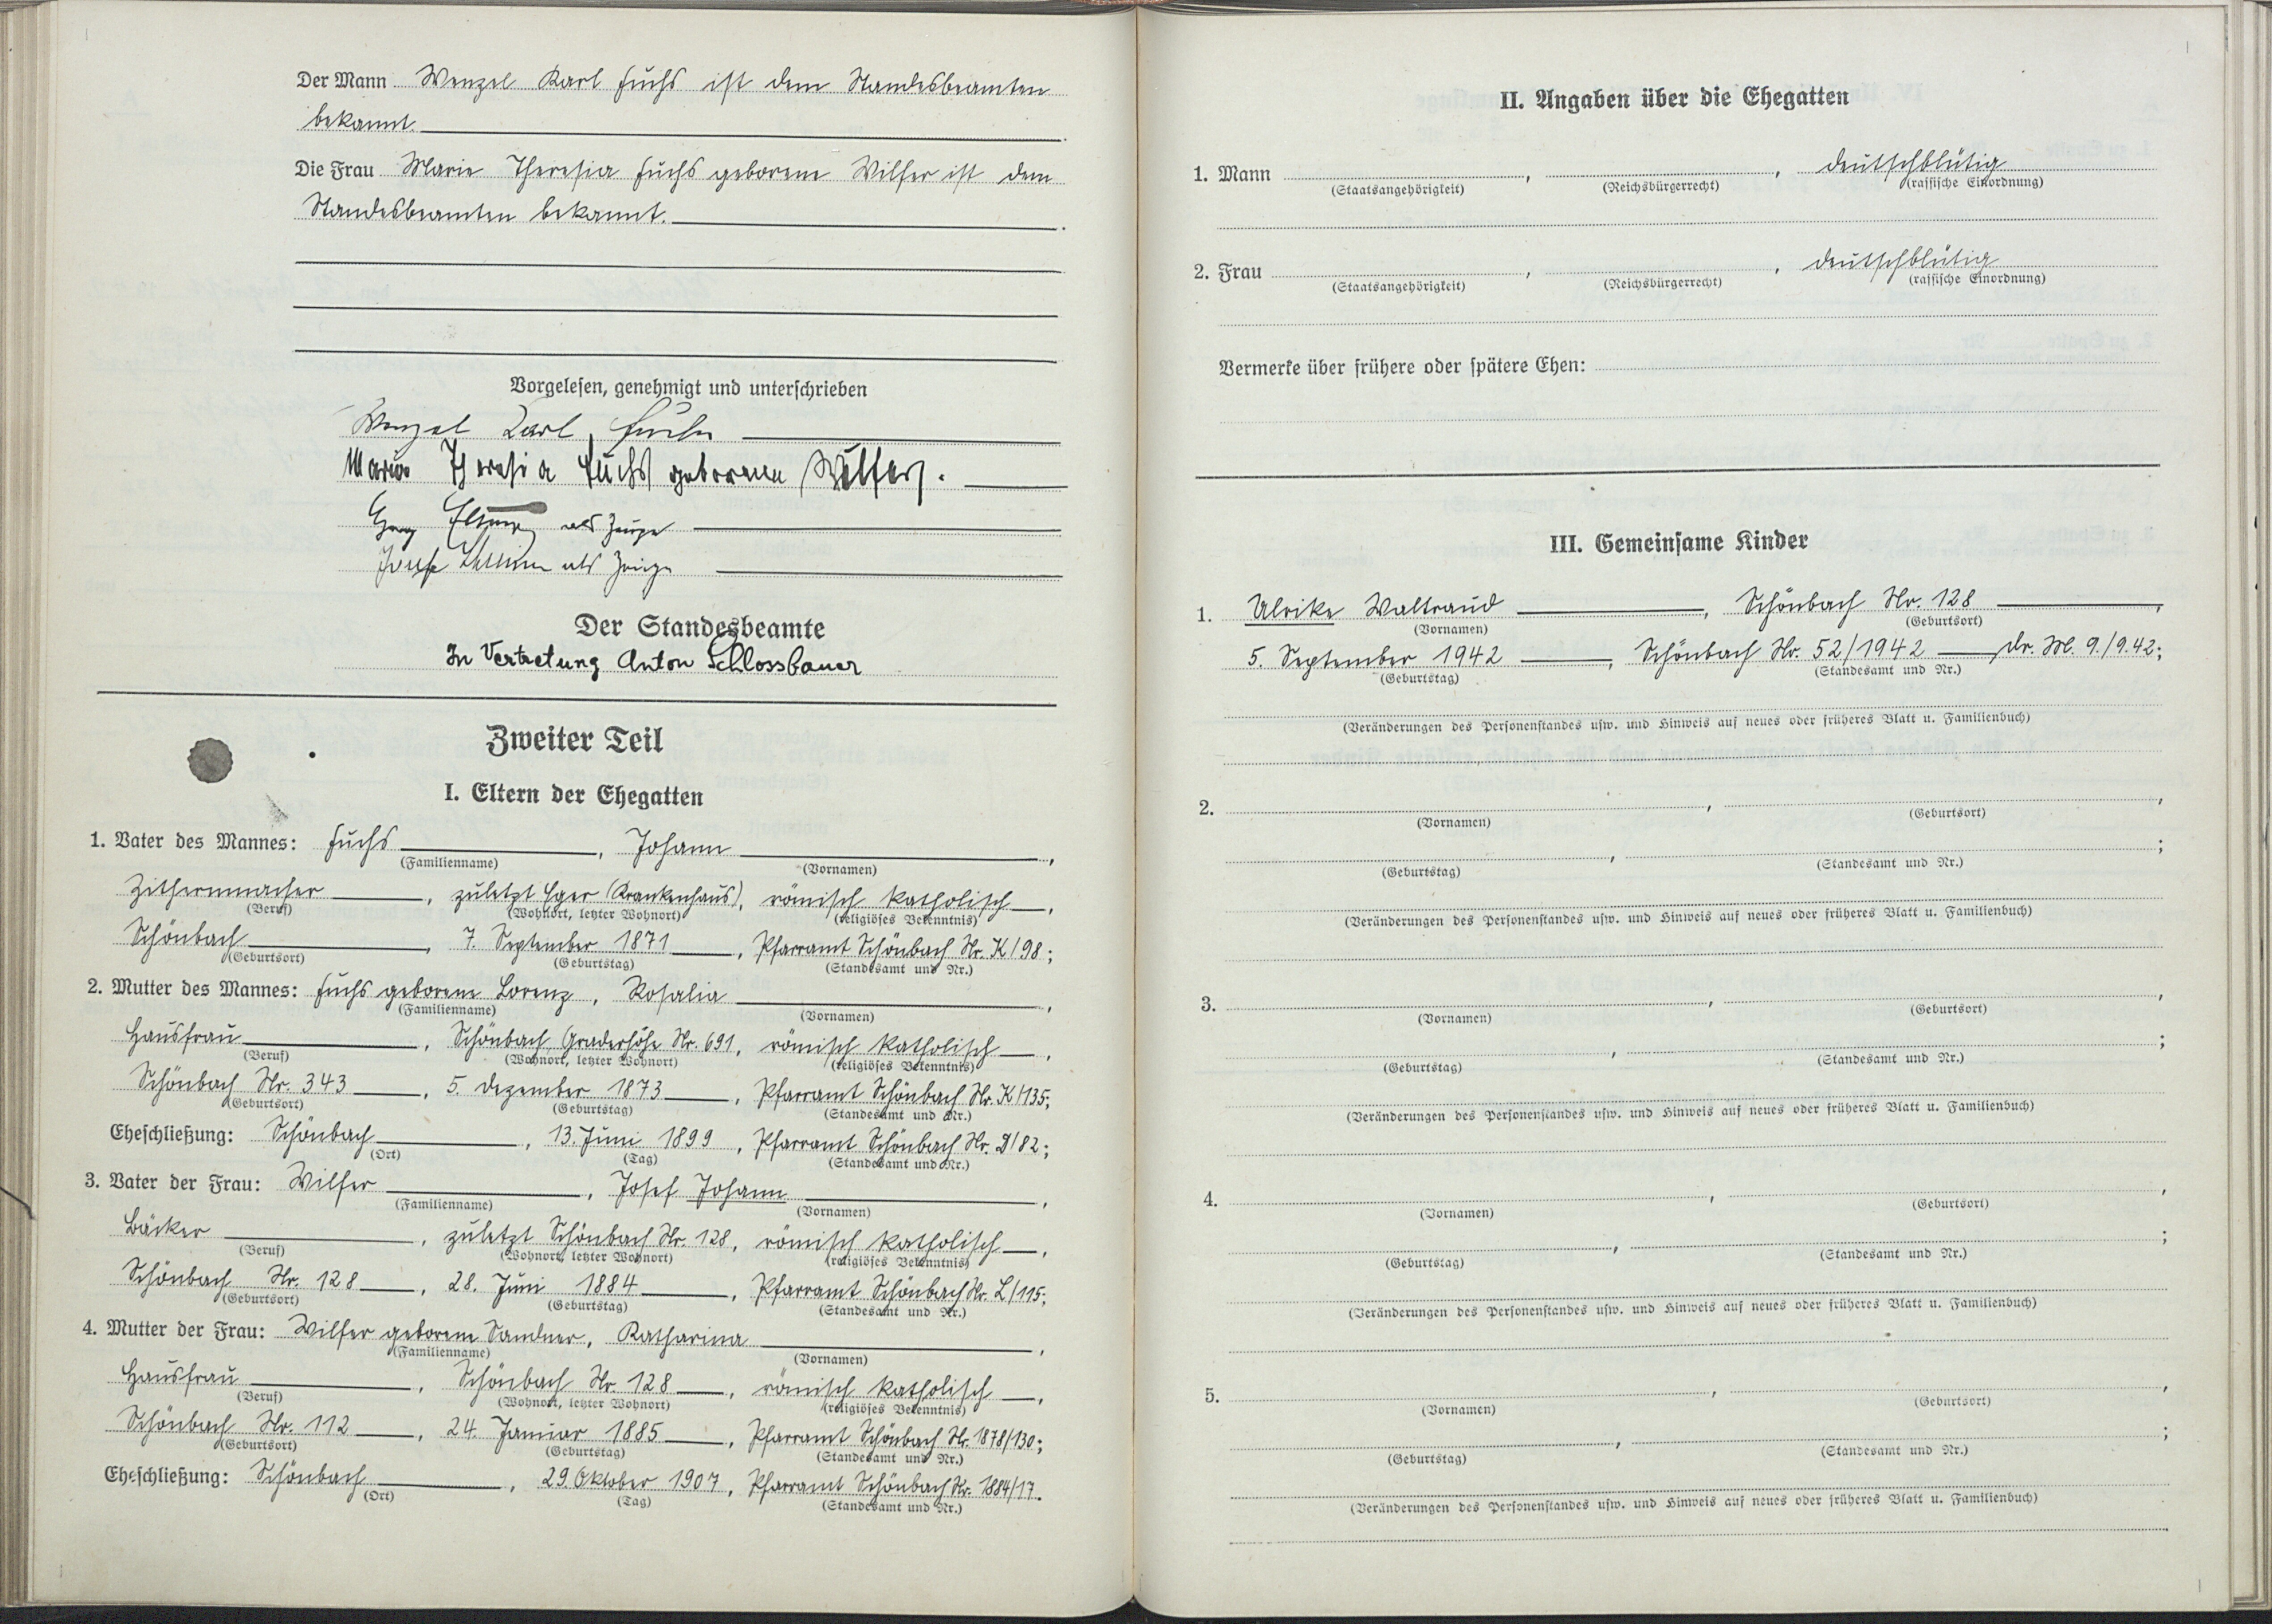 Der Mann Wenzel Karl Fuchs ist dem Standesbeamten
bekannt.
Die Frau Marie Theresia Fuchs geborene Wilfer ist dem
Standesbeamten bekannt.
Vorgelesen, genehmigt und unterschrieben
Wenzel Karl Fuchs
Marie Theresia Fuchs geborene Wilfer.
als Zeuge
Josef als Zeuge
Der Standesbeamte
In Vertretung Anton Schlossbauer
Zweiter Teil
I. Eltern der Ehegatten
1. Vater des Mannes: Fuchs, Johann,
(Familienname) (Vornamen)
Zithernmacher, zuletzt Eger (Krankenhaus), römisch katholisch,
(Beruf) (Wohnort, letzter Wohnort) (religiöses Bekenntnis)
Schönbach, 7. September 1871, Pfarramt Schönbach Nr. K/98;
(Geburtsort) (Geburtstag) (Standesamt und Nr.)
2. Mutter des Mannes: Fuchs geborene Lorenz, Rosalia,
(Familienname) (Vornamen)
Hausfrau, Schönbach Graderhöhe Nr. 691, römisch katholisch,
(Beruf) (Wohnort, letzter Wohnort) (religiöses Bekenntnis)
Schönbach Nr. 343, 5. Dezember 1873, Pfarramt Schönbach Nr. K/135;
(Geburtsort) (Geburtstag) (Standesamt und Nr.)
Eheschließung: Schönbach, 13. Juni 1899, Pfarramt Schönbach Nr. D/82;
(Ort) (Tag) (Standesamt und Nr.)
3. Vater der Frau: Wilfer, Josef Johann,
(Familienname) (Vornamen)
Bäcker, zuletzt Schönbach Nr. 128, römisch katholisch,
(Beruf) (Wohnort, letzter Wohnort) (religiöses Bekenntnis)
Schönbach Nr. 128, 28. Juni 1884, Pfarramt Schönbach Nr. L/115;
(Geburtsort) (Geburtstag) (Standesamt und Nr.)
4. Mutter der Frau: Wilfer geborene Sandner, Katharina,
(Familienname) (Vornamen)
Hausfrau, Schönbach Nr. 128, römisch katholisch,
(Beruf) (Wohnort, letzter Wohnort) (religiöses Bekenntnis)
Schönbach Nr. 112, 24. Januar 1885, Pfarramt Schönbach Nr. 1878/130;
(Geburtsort) (Geburtstag) (Standesamt und Nr.)
Eheschließung: Schönbach, 29. Oktober 1907, Pfarramt Schönbach Nr. 1884/17.
(Ort) (Tag) (Standesamt und Nr.)
II. Angaben über die Ehegatten
1. Mann , , deutschblütig
(Staatsangehörigkeit) (Reichsbürgerrecht) (rassische Einordnung)
2. Frau , , deutschblütig
(Staatsangehörigkeit) (Reichsbürgerrecht) (rassische Einordnung)
Vermerke über frühere oder spätere Ehen:
III. Gemeinsame Kinder
1. Ulrike Waltraud, Schönbach Nr. 128,
(Vornamen) (Geburtsort)
5. September 1942, Schönbach Nr. 52/1942 Dr. M. 9./9.42;
(Geburtstag) (Standesamt und Nr.)
(Veränderungen des Personenstandes usw. und Hinweis auf neues oder früheres Blatt u. Familienbuch)
2. , ,
(Vornamen) (Geburtsort)
, ;
(Geburtstag) (Standesamt und Nr.)
(Veränderungen des Personenstandes usw. und Hinweis auf neues oder früheres Blatt u. Familienbuch)
3. , ,
(Vornamen) (Geburtsort)
, ;
(Geburtstag) (Standesamt und Nr.)
(Veränderungen des Personenstandes usw. und Hinweis auf neues oder früheres Blatt u. Familienbuch)
4. , ,
(Vornamen) (Geburtsort)
, ;
(Geburtstag) (Standesamt und Nr.)
(Veränderungen des Personenstandes usw. und Hinweis auf neues oder früheres Blatt u. Familienbuch)
5. , ,
(Vornamen) (Geburtsort)
, ;
(Geburtstag) (Standesamt und Nr.)
(Veränderungen des Personenstandes usw. und Hinweis auf neues oder früheres Blatt u. Familienbuch)